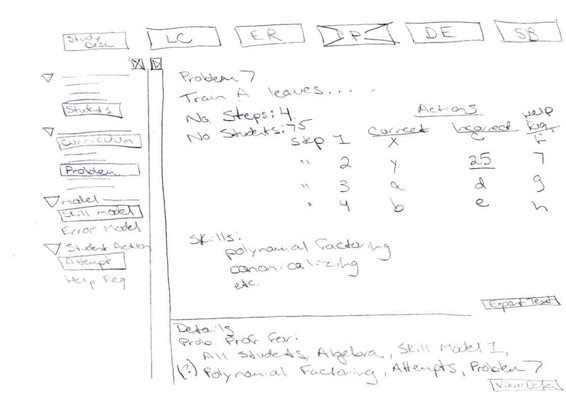 Study
LC
ER
PP
DE
SB
Students
Curriculum
Problem
model
Skill Model
Error Model
Student Action
Attempt
Help Req
Problem 7
Train A leaves....
No Steps: 4
No Students: 75
Actions
Correct Incorrect Help Req
Step 1 x c f
" 2 y 25 7
" 3 a d g
" 4 b e h
Skills:
polynomial factoring
canonicalizing
etc.
Export Text
Details
Prob. Prof for:
All Students, Algebra, Skill Model I,
(?) Polynomial Factoring, Attempts, Problem 7